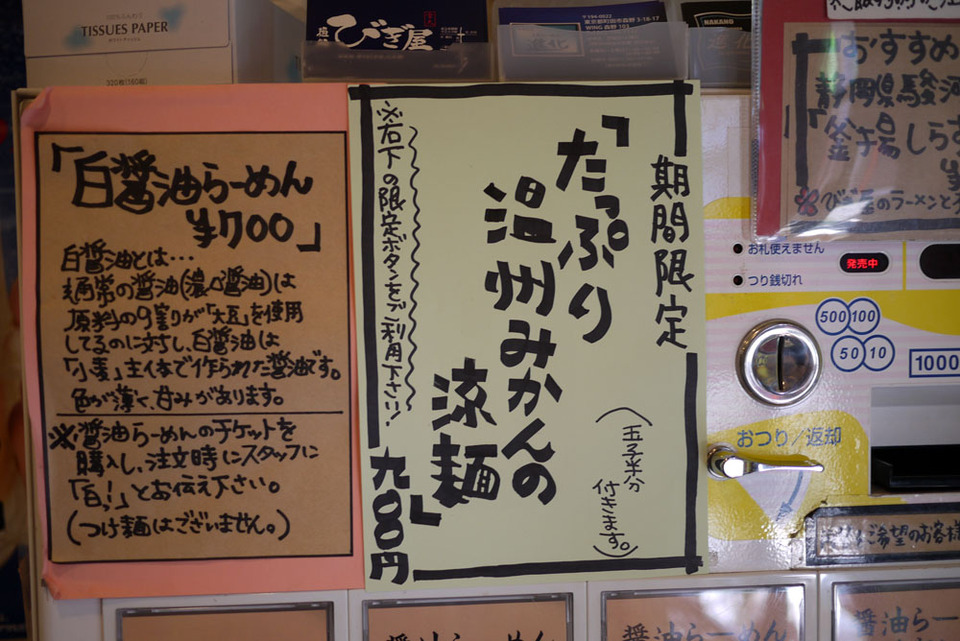 TISSUES PAPER
320枚(160組)
びぎ屋
〒194-0022
東京都町田市森野 3-18-17
WING 森野 103
進化
NAKANO
お
おすすめ
静岡県駿河
「釜揚しらす
※びぎ屋のラーメンと
「白醤油らーめん
¥700」
白醤油とは…
通常の醤油(濃口醤油)は
原料の9割りが「大豆」を使用
してるのに対し、白醤油は
「小麦」主体で作られた醤油です。
色が薄く、甘みがあります。
※醤油らーめんのチケットを
購入し、注文時にスタッフに
「白!」とお伝え下さい。
(つけ麺はございません。)
期間限定
「たっぷり
温州みかんの
涼麺」
九〇〇円
(玉子半分
付きます。)
※右下の限定ボタンをご利用下さい!
お札使えません
つり銭切れ
発売中
500 100
50 10
1000
おつり/返却
ご希望のお客様
醤油らーめん
醤油らーめん
醤油らー